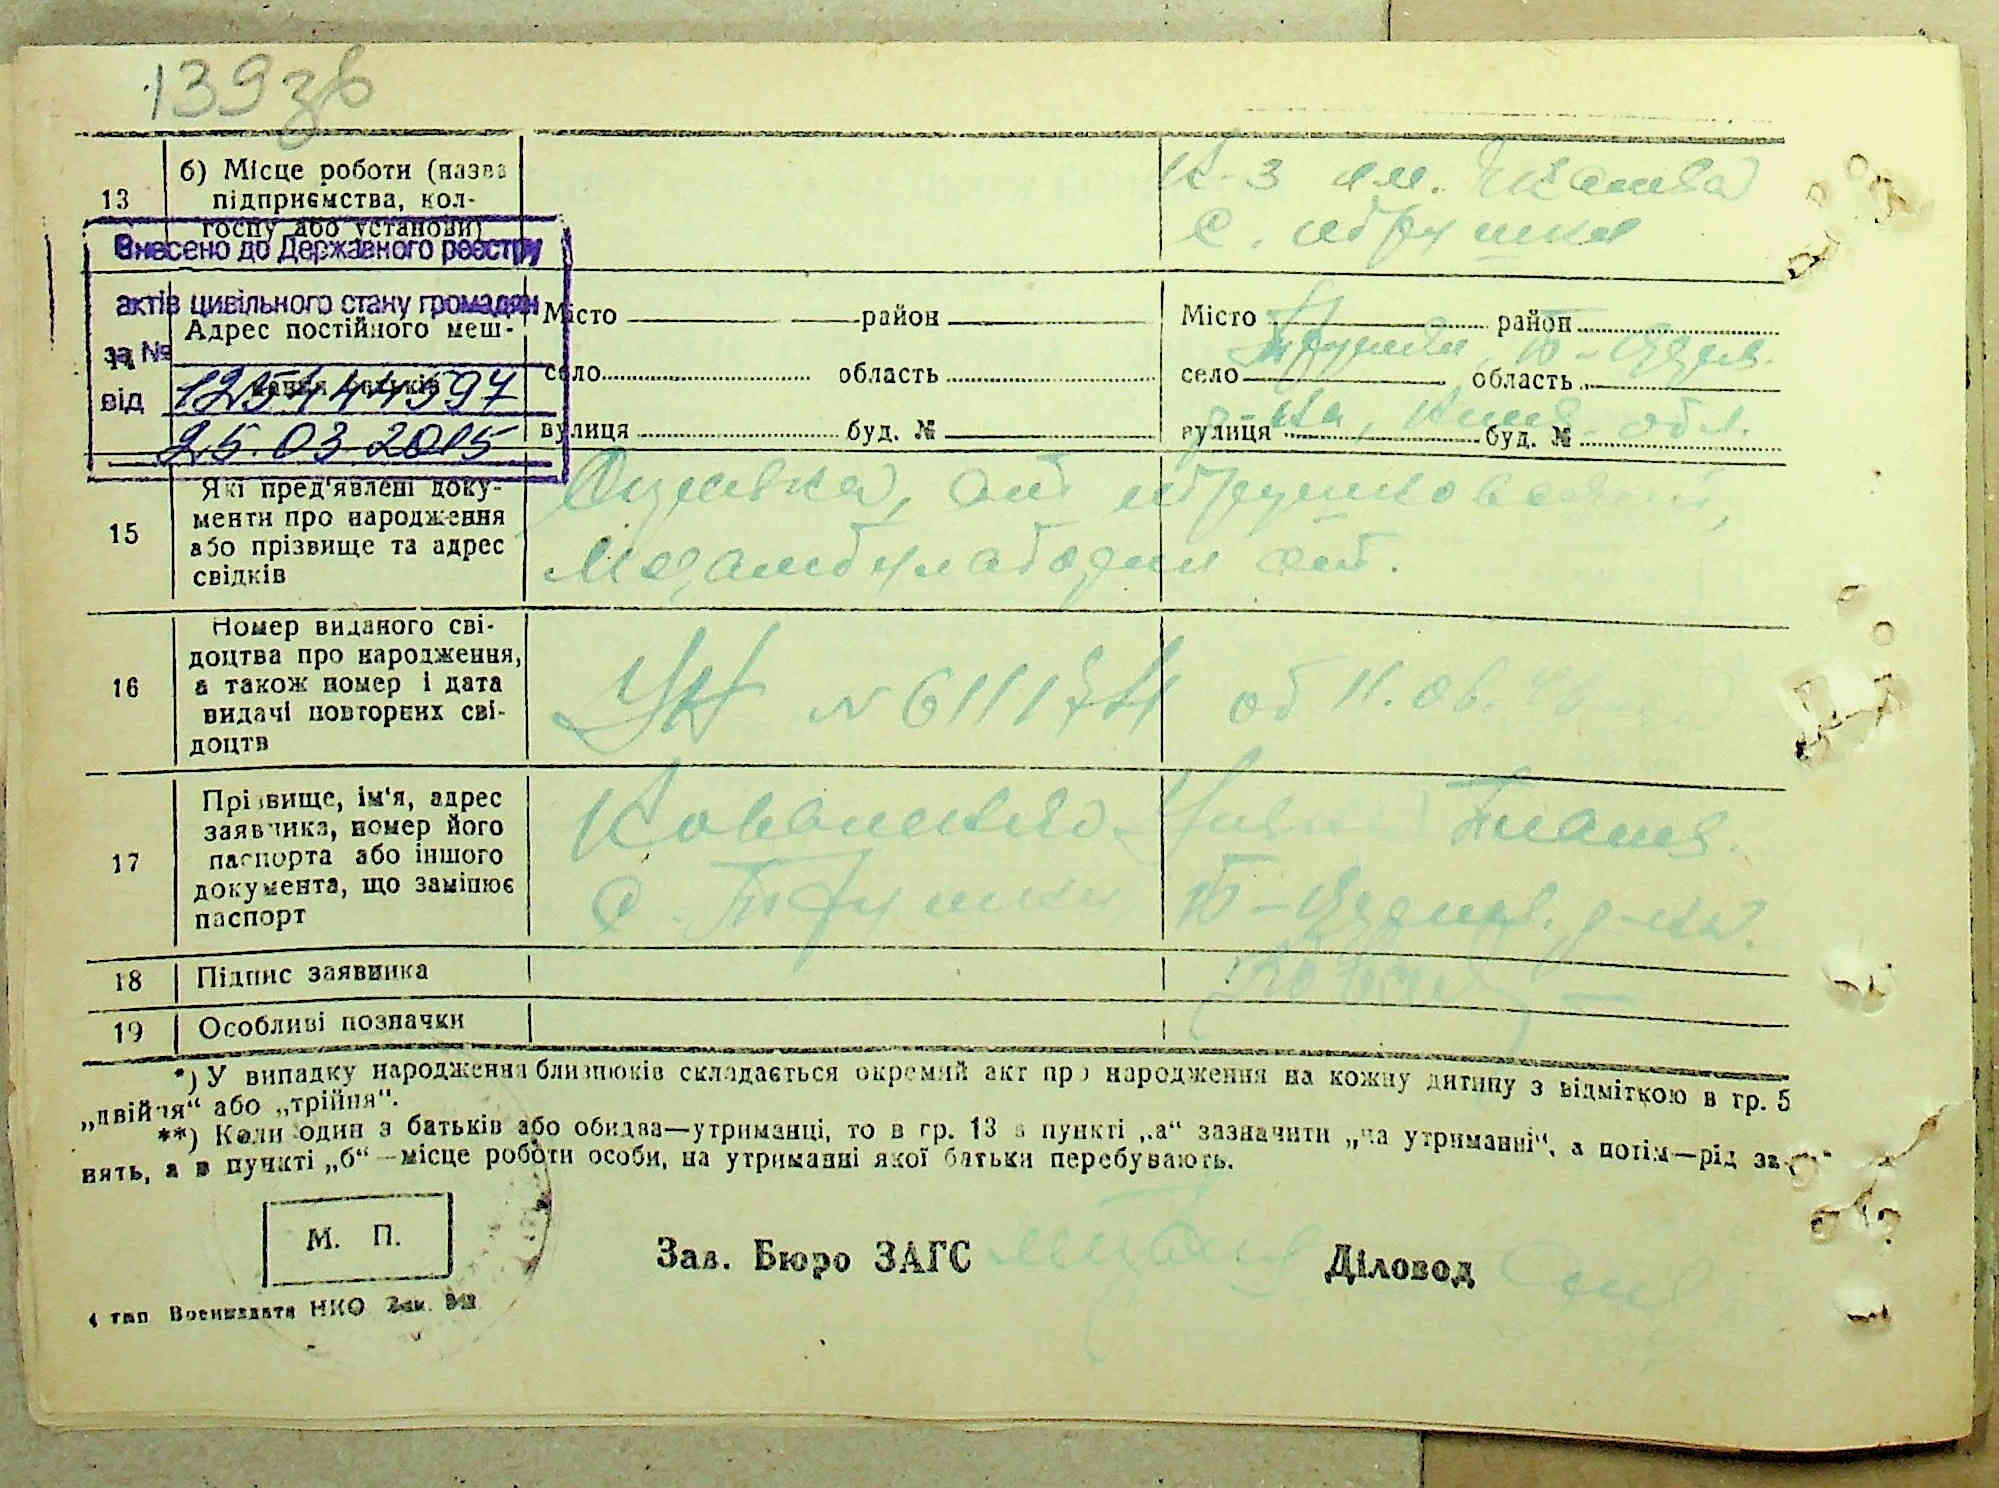 139зв
13
б) Місце роботи (назва
підприємства, кол-
госпу або установи)
К-з им.
с. Трушки
Внесено до Державного реєстру
актів цивільного стану громадян
за №
1254444597
від
25.03.2015
14
Адрес постійного меш-
кання батьків
Місто район
село область
вулиця буд. №
Місто район
село область
вулиця буд. №
Трушки, Б-Церк.
р-на, Киев. обл.
15
Які пред'явлені доку-
менти про народження
або прізвище та адрес
свідків
Справка, от Трушковской,
от.
16
Номер виданого сві-
доцтва про народження,
а також номер і дата
видачі повторних сві-
доцтв
№ от 11.
17
Прізвище, ім'я, адрес
заявника, номер його
паспорта або іншого
документа, що замінює
паспорт
Коваленко
с. Трушки Б-Церков. р-на.
18
Підпис заявника
19
Особливі позначки
*) У випадку народження близнюків складається окремий акт про народження на кожну дитину з відміткою в гр. 5
„двійня“ або „трійня“.
**) Коли один з батьків або обидва—утриманці, то в гр. 13 в пункті „а“ зазначити „на утриманні“, а потім—рід за-
нять, а в пункті „б“—місце роботи особи, на утриманні якої батьки перебувають.
М. П.
Зав. Бюро ЗАГС
Діловод
4 тип Воениздата НКО Зак.